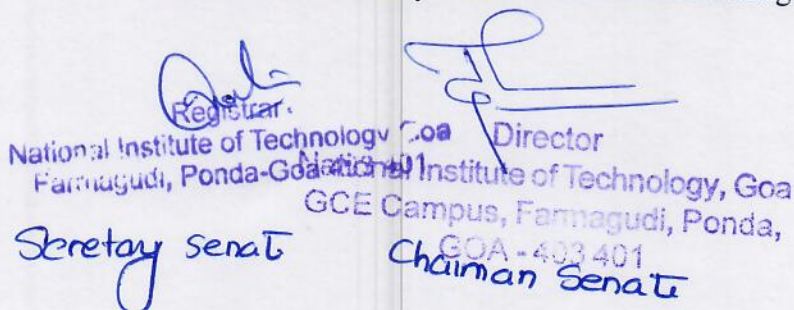 Registrar.
National Institute of Technology Goa
Farmagudi, Ponda-Goa
Secretay Senate
Director
National Institute of Technology, Goa
GCE Campus, Farmagudi, Ponda,
GOA - 403 401
Chaiman Senate